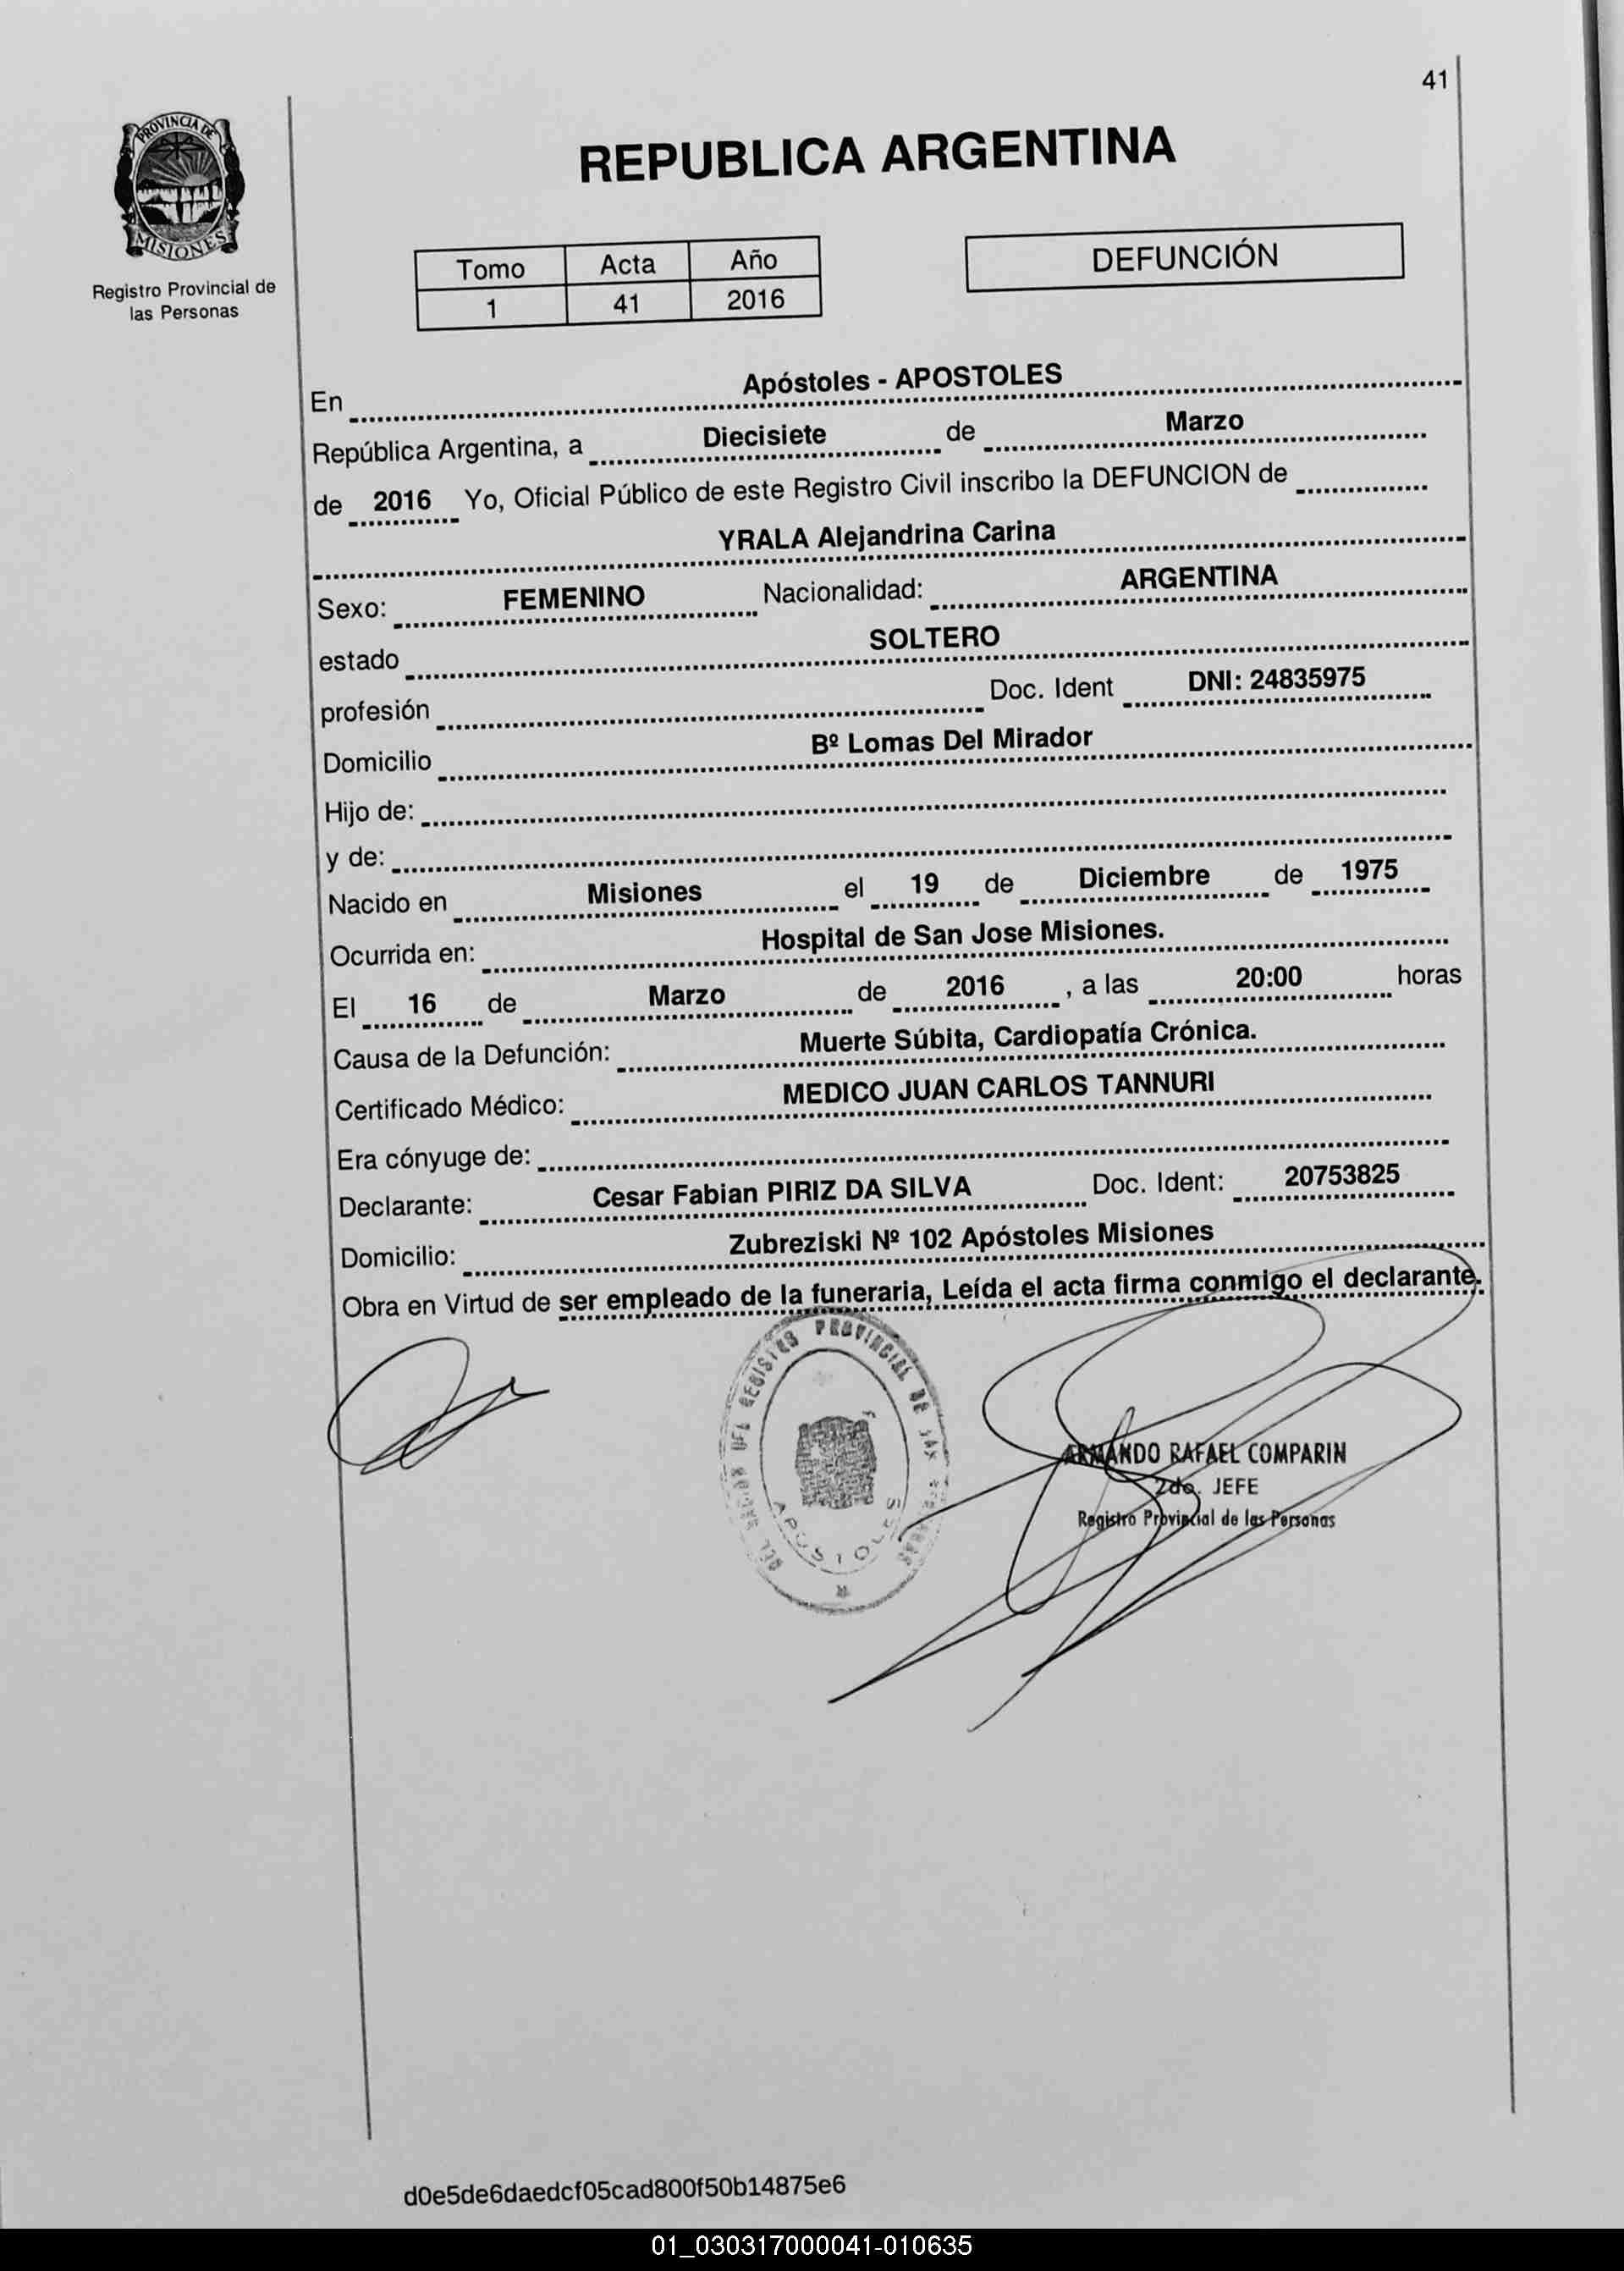 41
PROVINCIA DE
MISIONES
Registro Provincial de
las Personas
REPUBLICA ARGENTINA
Tomo Acta Año
1 41 2016
DEFUNCIÓN
En Apóstoles - APOSTOLES
República Argentina, a Diecisiete de Marzo
de 2016 Yo, Oficial Público de este Registro Civil inscribo la DEFUNCION de
YRALA Alejandrina Carina
Sexo: FEMENINO Nacionalidad: ARGENTINA
estado SOLTERO
profesión Doc. Ident DNI: 24835975
Domicilio Bº Lomas Del Mirador
Hijo de:
y de:
Nacido en Misiones el 19 de Diciembre de 1975
Ocurrida en: Hospital de San Jose Misiones.
El 16 de Marzo de 2016 , a las 20:00 horas
Causa de la Defunción: Muerte Súbita, Cardiopatía Crónica.
Certificado Médico: MEDICO JUAN CARLOS TANNURI
Era cónyuge de:
Declarante: Cesar Fabian PIRIZ DA SILVA Doc. Ident: 20753825
Domicilio: Zubreziski Nº 102 Apóstoles Misiones
Obra en Virtud de ser empleado de la funeraria, Leída el acta firma conmigo el declarante.
DEL REGISTRO PROVINCIAL DE LAS
APOSTOLES
ARMANDO RAFAEL COMPARIN
2do. JEFE
Registro Provincial de las Personas
d0e5de6daedcf05cad800f50b14875e6
01_030317000041-010635